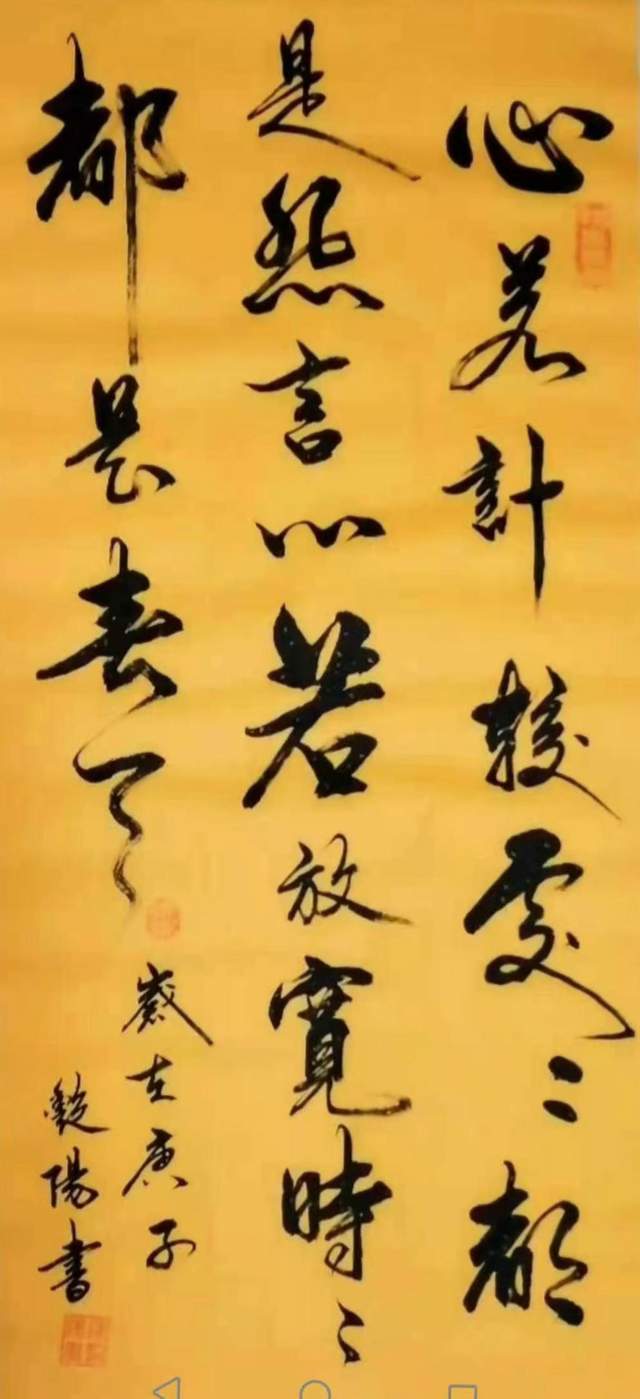 心若計較處〻都
是怨言心若放寬時〻
都是春天
歲在庚子
陽書